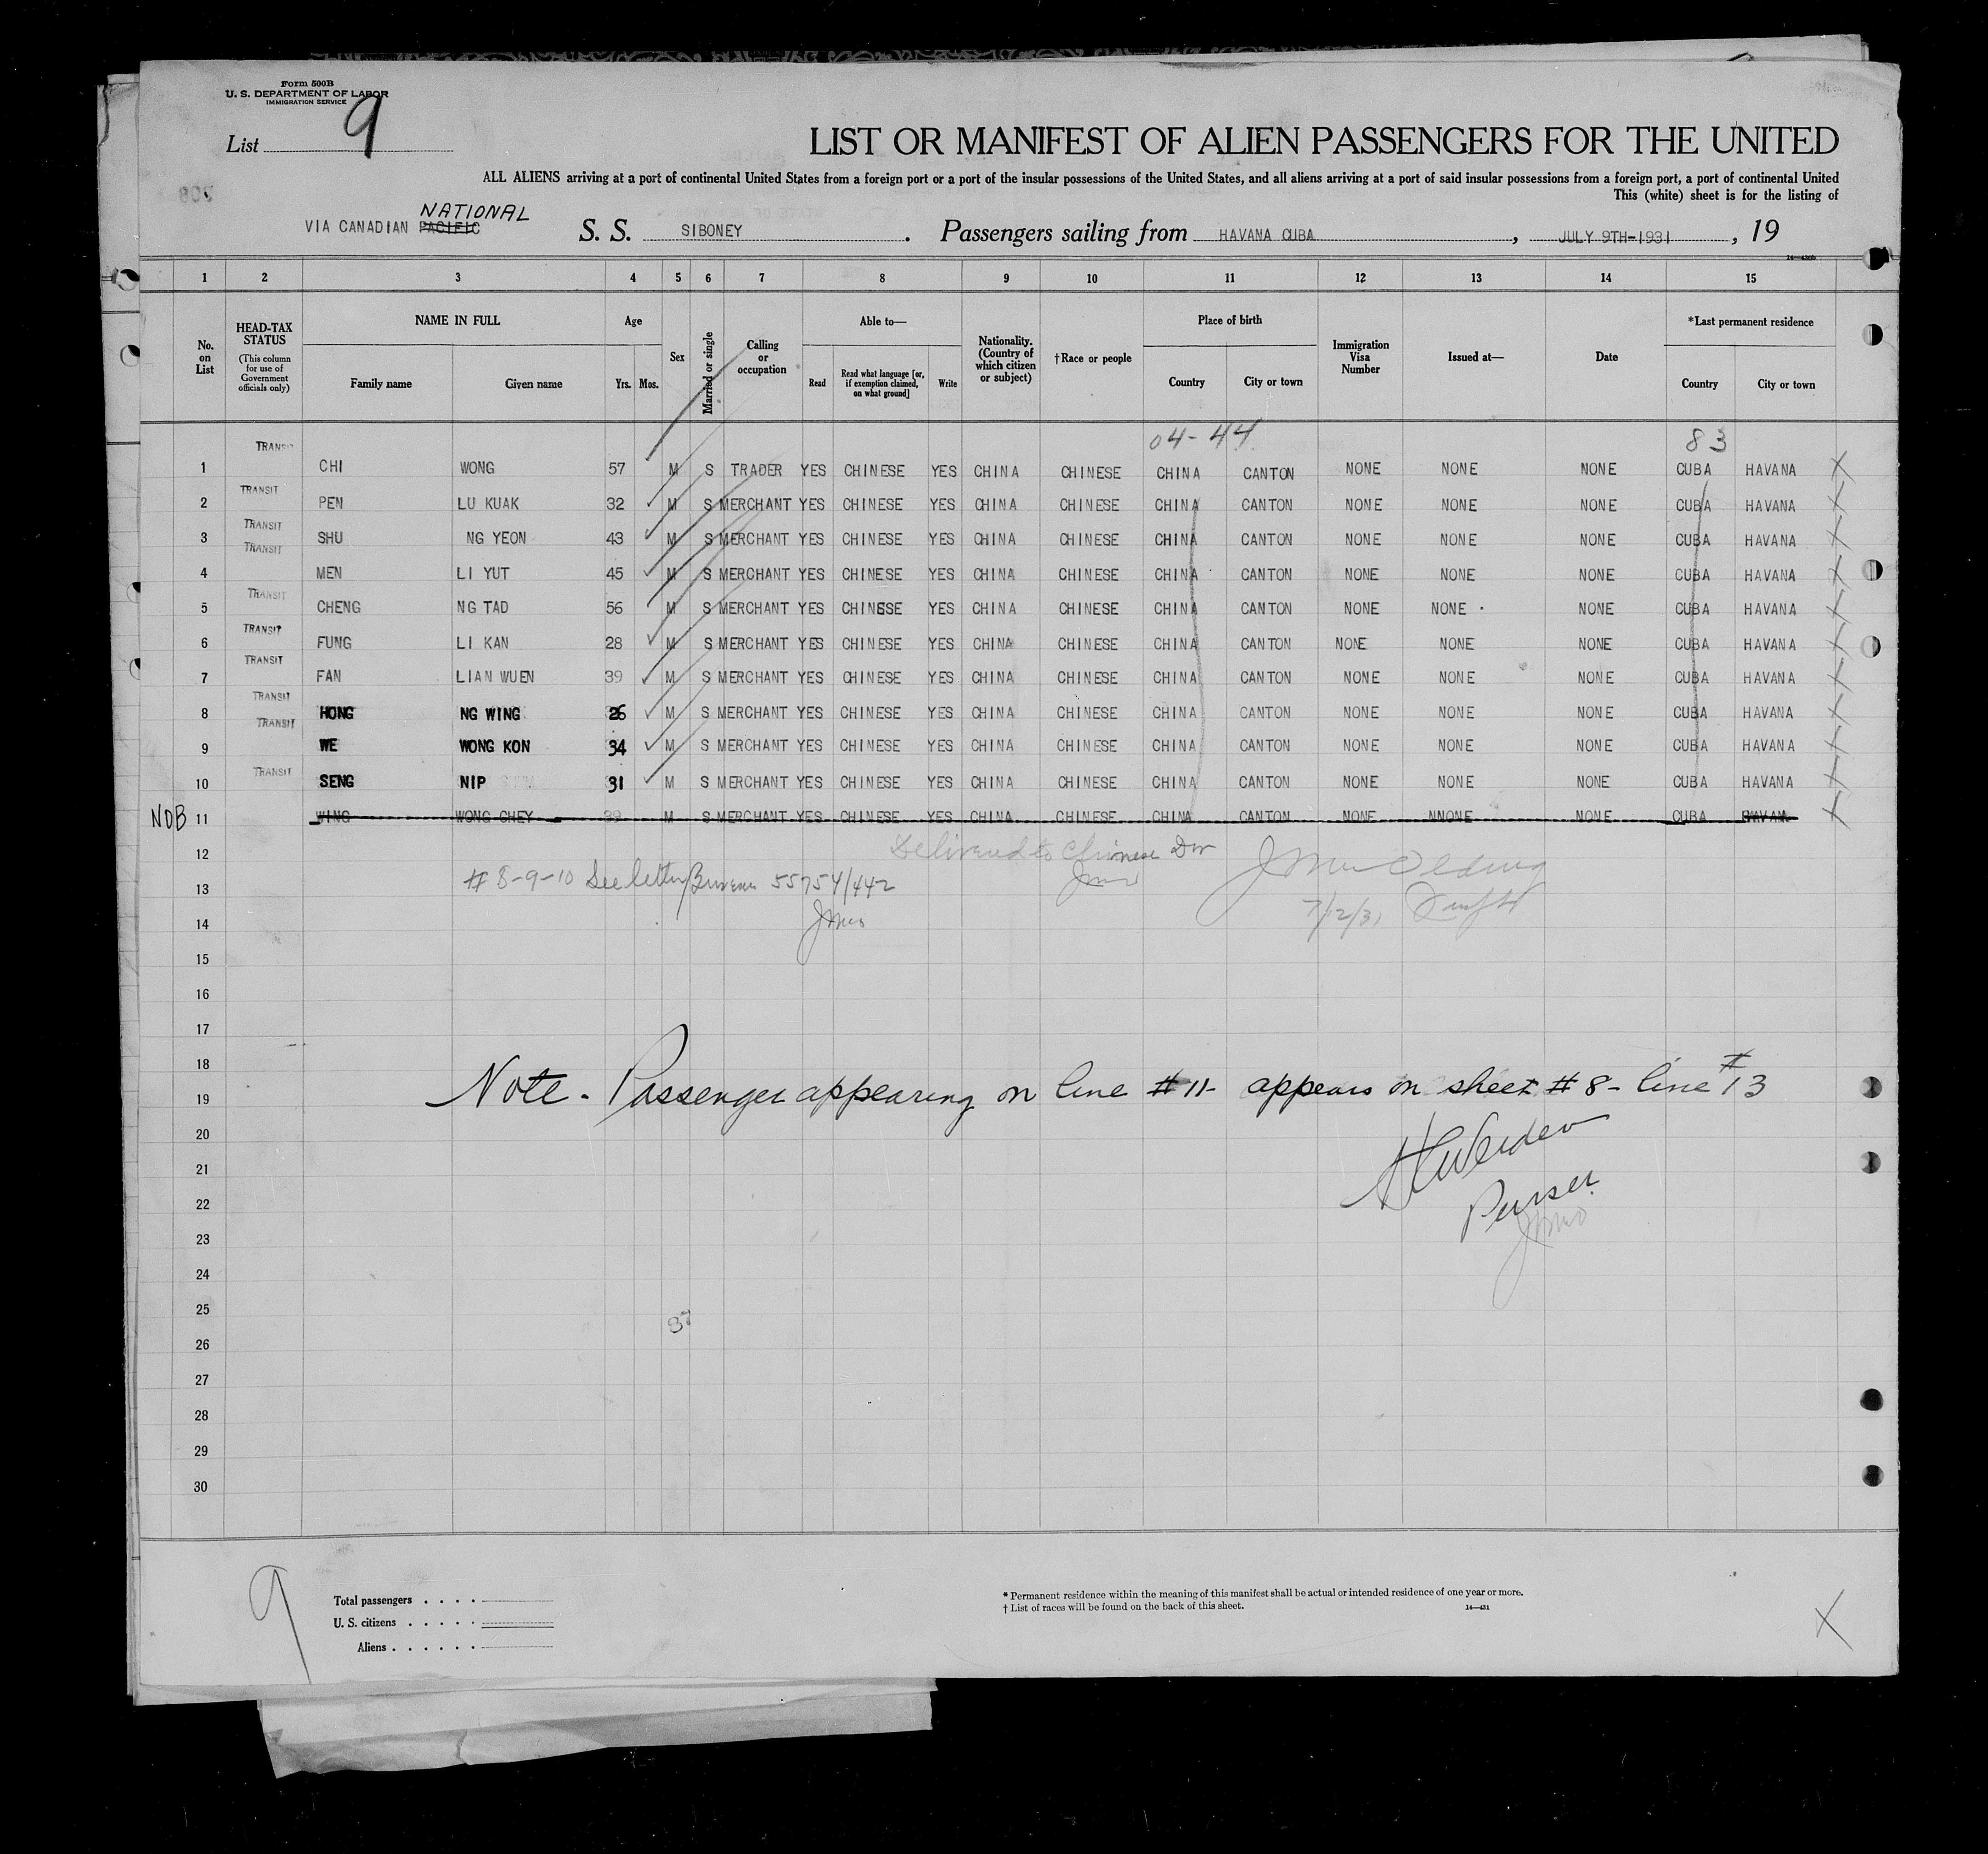 Form 500B
U. S. DEPARTMENT OF LABOR
IMMIGRATION SERVICE
List 9
LIST OR MANIFEST OF ALIEN PASSENGERS FOR THE UNITED
ALL ALIENS arriving at a port of continental United States from a foreign port or a port of the insular possessions of the United States, and all aliens arriving at a port of said insular possessions from a foreign port, a port of continental United
This (white) sheet is for the listing of
NATIONAL
VIA CANADIAN PACIFIC S. S. SIBONEY . Passengers sailing from HAVANA CUBA , JULY 9TH-1931 , 19
1 2 3 4 5 6 7 8 9 10 11 12 13 14 15
No. on List
HEAD-TAX STATUS (This column for use of Government officials only)
NAME IN FULL
Family name
Given name
Age
Yrs. Mos.
Sex
Married or single
Calling or occupation
Able to—
Read
Read what language [or, if exemption claimed, on what ground]
Write
Nationality. (Country of which citizen or subject)
†Race or people
Place of birth
Country
City or town
Immigration Visa Number
Issued at—
Date
*Last permanent residence
Country
City or town
04-44 83
1 TRANSIT CHI WONG 57 M S TRADER YES CHINESE YES CHINA CHINESE CHINA CANTON NONE NONE NONE CUBA HAVANA
2 TRANSIT PEN LU KUAK 32 M S MERCHANT YES CHINESE YES CHINA CHINESE CHINA CANTON NONE NONE NONE CUBA HAVANA
3 TRANSIT SHU NG YEON 43 M S MERCHANT YES CHINESE YES CHINA CHINESE CHINA CANTON NONE NONE NONE CUBA HAVANA
4 TRANSIT MEN LI YUT 45 M S MERCHANT YES CHINESE YES CHINA CHINESE CHINA CANTON NONE NONE NONE CUBA HAVANA
5 TRANSIT CHENG NG TAD 56 M S MERCHANT YES CHINESE YES CHINA CHINESE CHINA CANTON NONE NONE NONE CUBA HAVANA
6 TRANSIT FUNG LI KAN 28 M S MERCHANT YES CHINESE YES CHINA CHINESE CHINA CANTON NONE NONE NONE CUBA HAVANA
7 TRANSIT FAN LIAN WUEN 39 M S MERCHANT YES CHINESE YES CHINA CHINESE CHINA CANTON NONE NONE NONE CUBA HAVANA
8 TRANSIT HONG NG WING 26 M S MERCHANT YES CHINESE YES CHINA CHINESE CHINA CANTON NONE NONE NONE CUBA HAVANA
9 TRANSIT WE WONG KON 34 M S MERCHANT YES CHINESE YES CHINA CHINESE CHINA CANTON NONE NONE NONE CUBA HAVANA
10 TRANSIT SENG NIP 31 M S MERCHANT YES CHINESE YES CHINA CHINESE CHINA CANTON NONE NONE NONE CUBA HAVANA
NOB 11 WING WONG CHEY 39 M S MERCHANT YES CHINESE YES CHINA CHINESE CHINA CANTON NONE NNONE NONE CUBA HAVANA
12 Delivered to Chinese Div
13 # 8-9-10 See letter Bureau 55754/442
14 7/12/31
15
16
17
18
19 Note - Passenger appearing on line # 11- appears on sheet # 8- line # 13
20
21
22 Purser
23
24
25
26
27
28
29
30
9
Total passengers
U. S. citizens
Aliens
* Permanent residence within the meaning of this manifest shall be actual or intended residence of one year or more.
† List of races will be found on the back of this sheet.
X